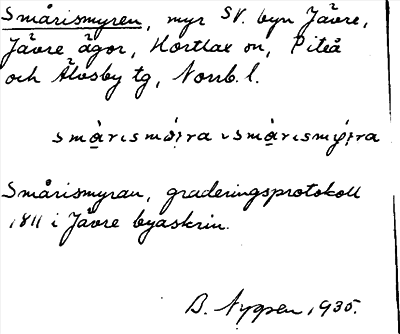 Smårismyren, myr SV. byn Jävre,
Jävre ägor, Hortlax sn, Piteå
och Älvsby tg, Norrb. l.
Smårismyran, graderingsprotokoll
1811 i Jävre byaskrin.
B. Nygren, 1935.